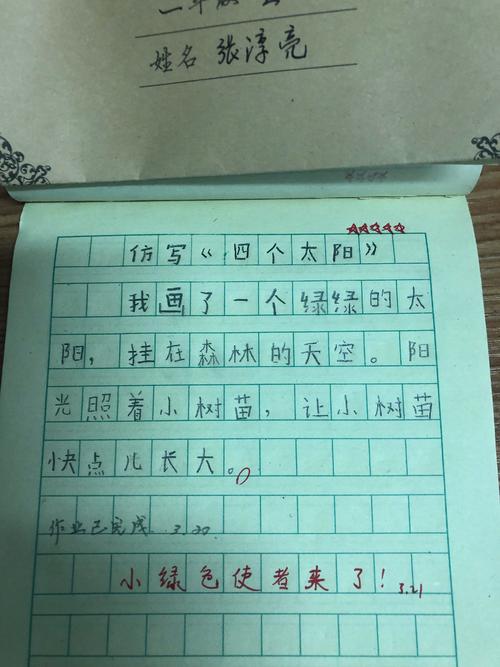 一年级
姓名 张淳亮
仿写《四个太阳》
我画了一个绿绿的太
阳，挂在森林的天空。阳
光照着小树苗，让小树苗
快点儿长大。
作业已完成 3.20
小绿色使者来了！3.21